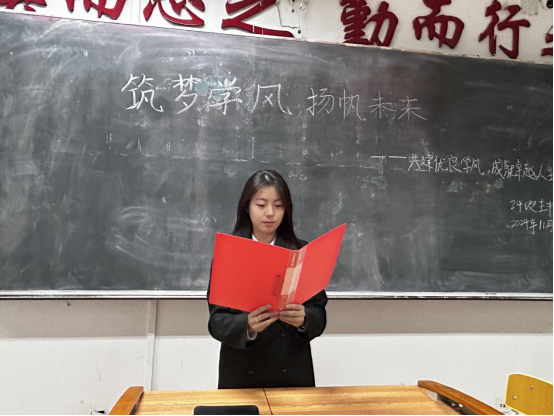 而思之 勤而行
筑梦学风，扬帆未来
——共建优良学风，成就卓越人生
2024年11月